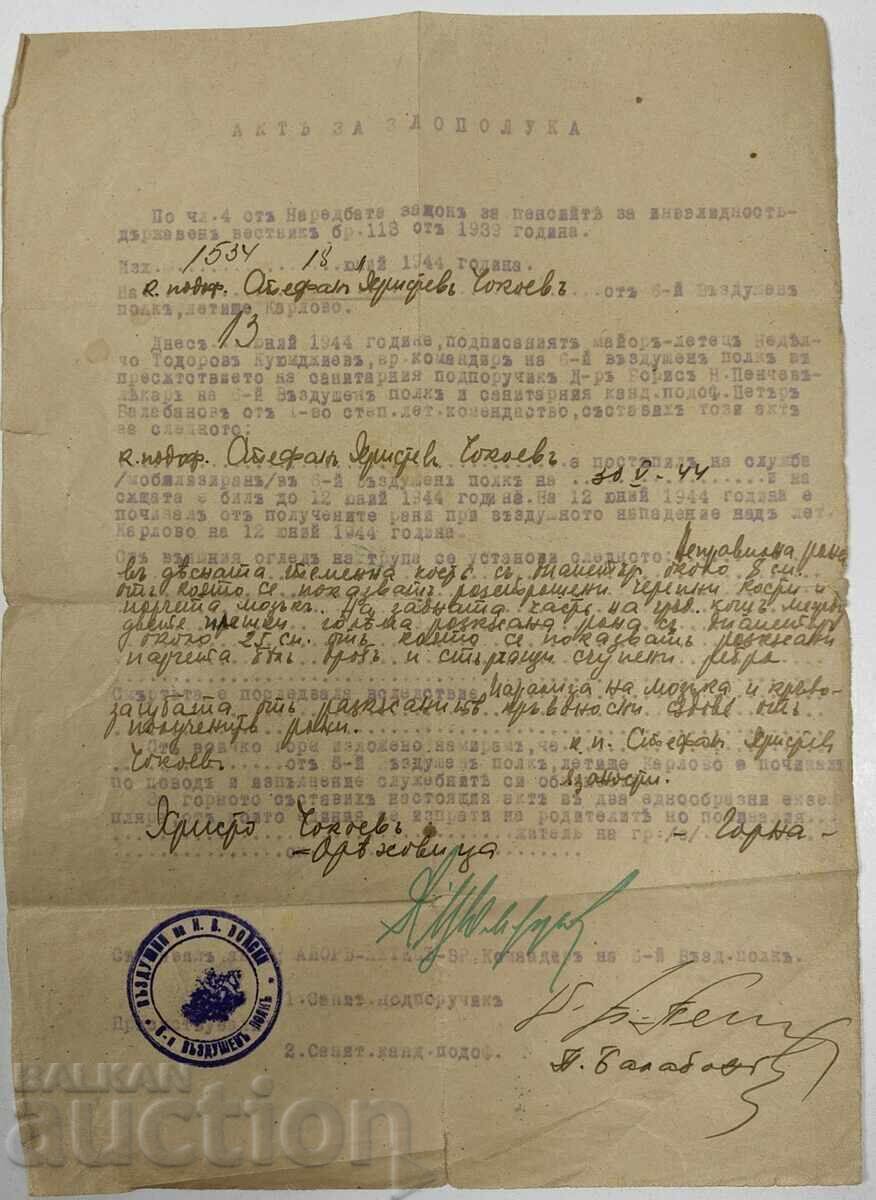 АКТЪ ЗА ЗЛОПОЛУКА
По чл.4 отъ Наредбата законъ за пенсиитѣ за инвалидность-
държавенъ вестникъ бр.113 отъ 1939 година.
Изх. 1534 18 юний 1944 година.
На к. подоф. Стефанъ Христевъ Чокоевъ отъ 6-й Въздушенъ
полкъ, летище Карлово.
Днесъ 13 юний 1944 година, подписаниятъ майоръ-летецъ Недѣл-
чо Тодоровъ Куюмджиевъ, вр.командиръ на 6-й въздушенъ полкъ въ
пресѫтствието на санитарния подпоручикъ Д-ръ Борисъ Н. Пенчевъ-
лѣкаръ на 6-й Въздушенъ полкъ и санитарния канд.подоф. Петъръ
Балабановъ отъ 1-во степ.лет.комендаство, съставихъ този актъ
за следното:
к. подоф. Стефанъ Христевъ Чокоевъ е постѫпилъ на служба
/мобилизиранъ/ въ 6-й Въздушенъ полкъ на 30.V.-44 и на
сѫщата е билъ до 12 юний 1944 година. На 12 юний 1944 година е
починалъ отъ полученитѣ рани при въздушното нападение надъ лет.
Карлово на 12 юний 1944 година.
Отъ външния огледъ на трупа се установи следното: Неправилна рана
въ дѣсната теменна кость съ диаметъръ около 8 см.
отъ която се показватъ раздробени черепни кости и
парчета мозъкъ. На задната часть на грѫд. кошъ между
двете плешки голѣма разкѫсана рана съ диаметъръ
около 25 см. отъ която се показватъ разкѫсани
парчета бѣлъ дробъ и стърчащи счупени ребра
Смъртьта е последвала вследствие парализа на мозъка и крьво-
загубата отъ разкѫсанитѣ кръвоносни сѫдове отъ
полученитѣ рани.
Отъ всичко горе изложено намирамъ, че к. п. Стефанъ Христевъ
Чокоевъ отъ 6-й въздушенъ полкъ, летище Карлово е починалъ
по поводъ и изпълнение служебнитѣ си обязаности.
За горното съставихъ настоящия актъ въ два еднообразни екзем-
пляра
Христо Чокоевъ жителъ на гр. - Горна -
- Орѣховица
Съставилъ МАЙОРЪ-ЛЕТЕЦЪ-Вр. Командиръ на 6-й Възд.полкъ.
1. Санит.подпоручикъ
2. Санит.канд.подоф.
П. Балабановъ
ВЪЗДУШНИ НА Н. В. ВОЙСКИ
6-й ВЪЗДУШЕНЪ ПОЛКЪ
BALKAN
auction